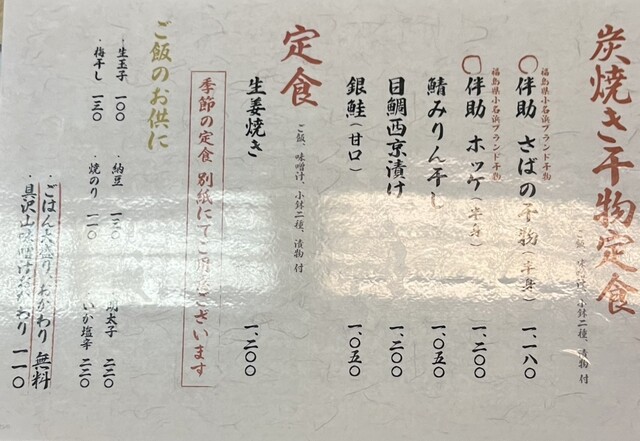 炭焼き干物定食
ご飯、味噌汁、小鉢二種、漬物 付
福島県小名浜ブランド干物
〇伴助 さばの干物(半身) 一、一八〇
福島県小名浜ブランド干物
〇伴助 ホッケ(半身) 一、二〇〇
鯖みりん干し 一、〇五〇
目鯛西京漬け 一、二〇〇
銀鮭(甘口) 一、〇五〇
定食
ご飯、味噌汁、小鉢二種、漬物 付
生姜焼き 一、二〇〇
季節の定食 別紙にてご用意ございます
ご飯のお供に
・生玉子 一〇〇
・納豆
明太子 二二〇
・梅干し 一三〇
・焼のり 一一〇
いか塩辛 二二〇
・ごはん大盛り、おかわり 無料
・具沢山味噌汁おかわり 一一〇